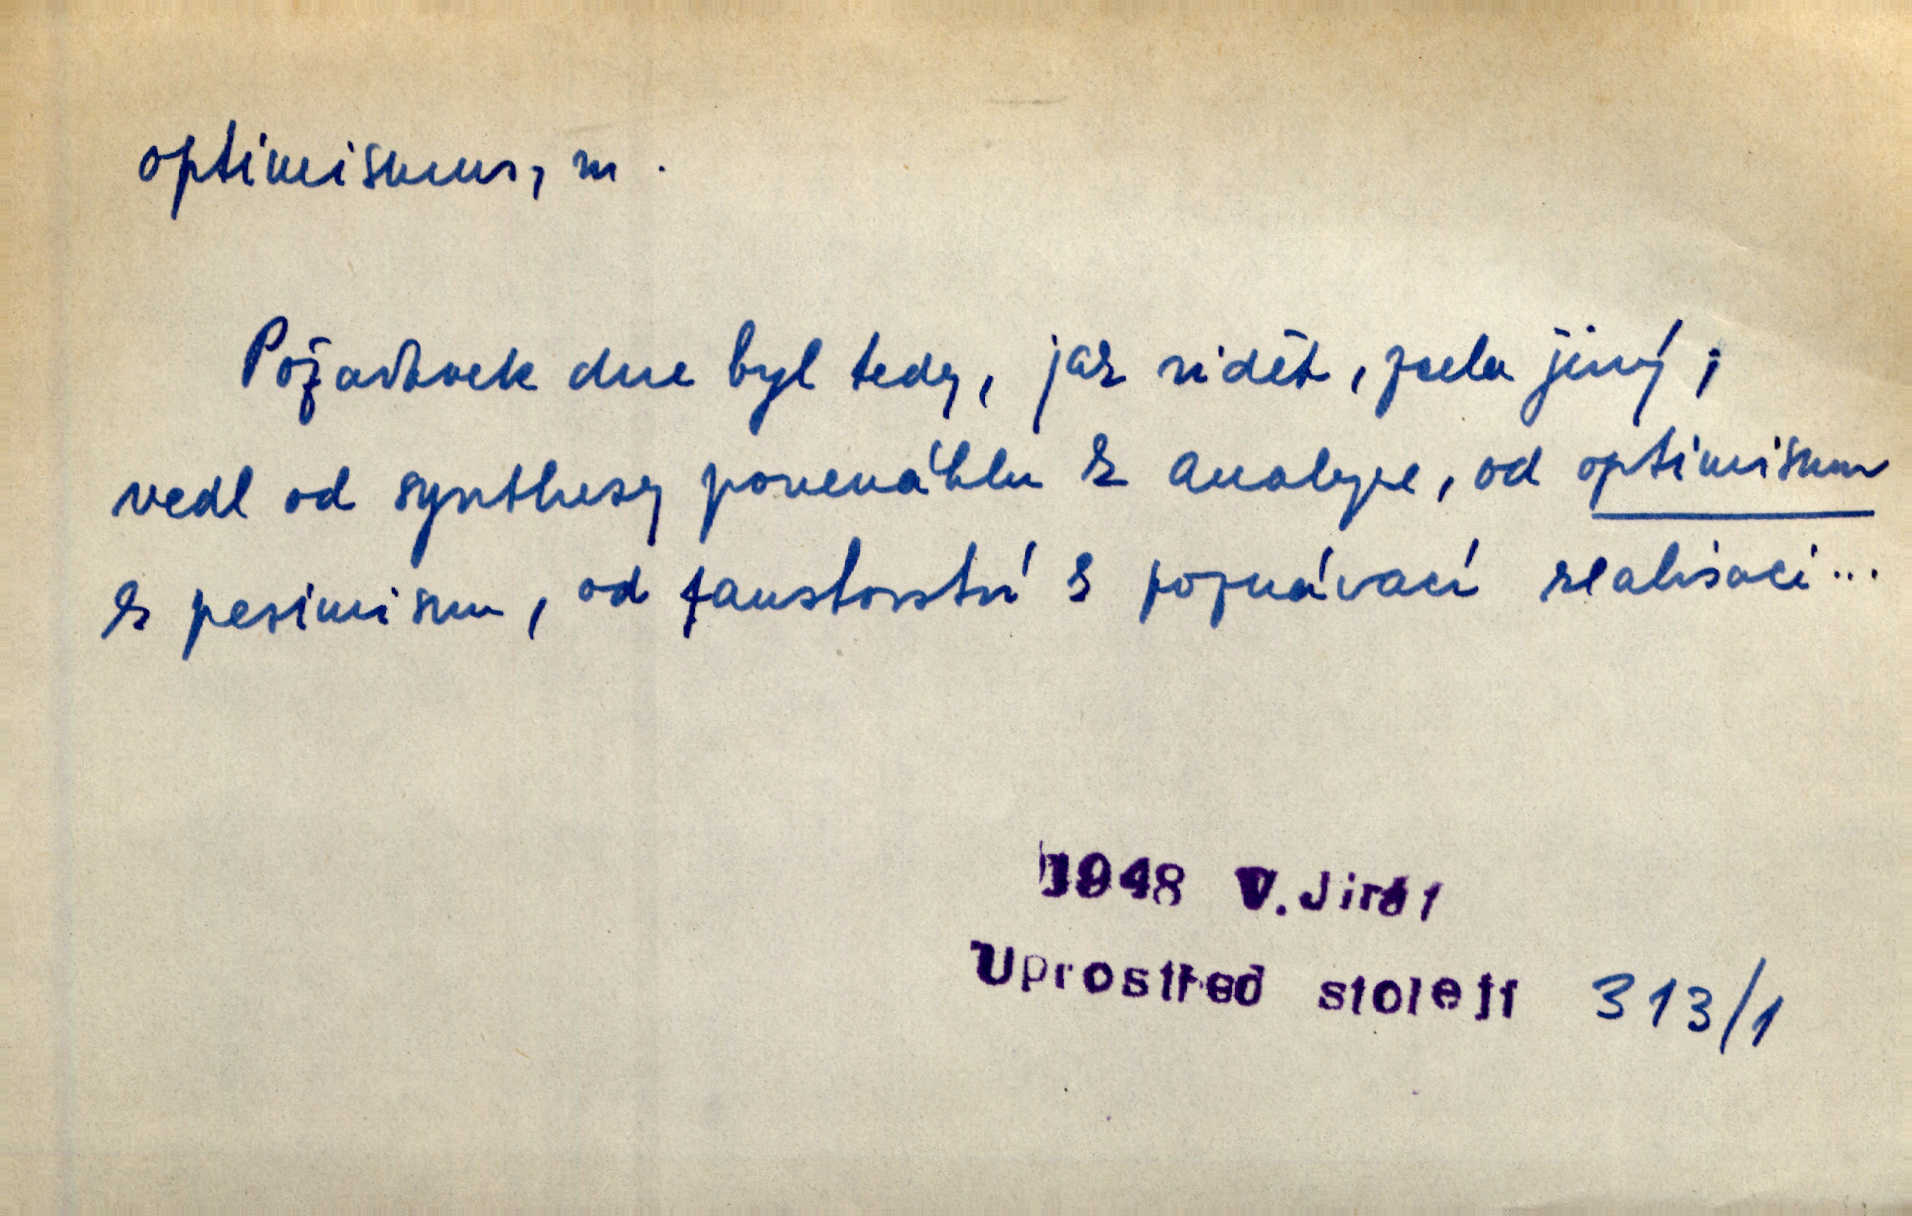 optimismus, m.
Požadavek dne byl tedy, jak vidět, zcela jiný;
vedl od synthesy ponenáhlu k analyze, od optimismu
k pesimismu, od faustovství k poznávací realisaci...
1948 V. Jirát
Uprostřed století 313/1